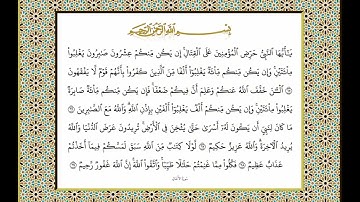 بِسْمِ ٱللَّهِ ٱلرَّحْمَٰنِ ٱلرَّحِيمِ
يَٰٓأَيُّهَا ٱلنَّبِىُّ حَرِّضِ ٱلْمُؤْمِنِينَ عَلَى ٱلْقِتَالِ إِن يَكُن مِّنكُمْ عِشْرُونَ صَٰبِرُونَ يَغْلِبُوا۟
مِا۟ئَتَيْنِ وَإِن يَكُن مِّنكُم مِّا۟ئَةٌ يَغْلِبُوٓا۟ أَلْفًا مِّنَ ٱلَّذِينَ كَفَرُوا۟ بِأَنَّهُمْ قَوْمٌ لَّا يَفْقَهُونَ
٦٥ ٱلْـَٰٔنَ خَفَّفَ ٱللَّهُ عَنكُمْ وَعَلِمَ أَنَّ فِيكُمْ ضَعْفًا فَإِن يَكُن مِّنكُم مِّا۟ئَةٌ صَابِرَةٌ
يَغْلِبُوا۟ مِا۟ئَتَيْنِ وَإِن يَكُن مِّنكُمْ أَلْفٌ يَغْلِبُوٓا۟ أَلْفَيْنِ بِإِذْنِ ٱللَّهِ وَٱللَّهُ مَعَ ٱلصَّٰبِرِينَ ٦٦
مَا كَانَ لِنَبِىٍّ أَن يَكُونَ لَهُۥٓ أَسْرَىٰ حَتَّىٰ يُثْخِنَ فِى ٱلْأَرْضِ تُرِيدُونَ عَرَضَ ٱلدُّنْيَا وَٱللَّهُ
يُرِيدُ ٱلْـَٔاخِرَةَ وَٱللَّهُ عَزِيزٌ حَكِيمٌ ٦٧ لَّوْلَا كِتَٰبٌ مِّنَ ٱللَّهِ سَبَقَ لَمَسَّكُمْ فِيمَآ أَخَذْتُمْ
عَذَابٌ عَظِيمٌ ٦٨ فَكُلُوا۟ مِمَّا غَنِمْتُمْ حَلَٰلًا طَيِّبًا وَٱتَّقُوا۟ ٱللَّهَ إِنَّ ٱللَّهَ غَفُورٌ رَّحِيمٌ ٦٩
سورة الأنفال